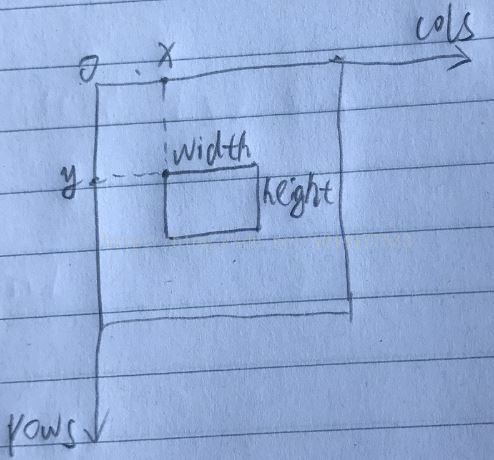 cols
O x
width
y
height
rows